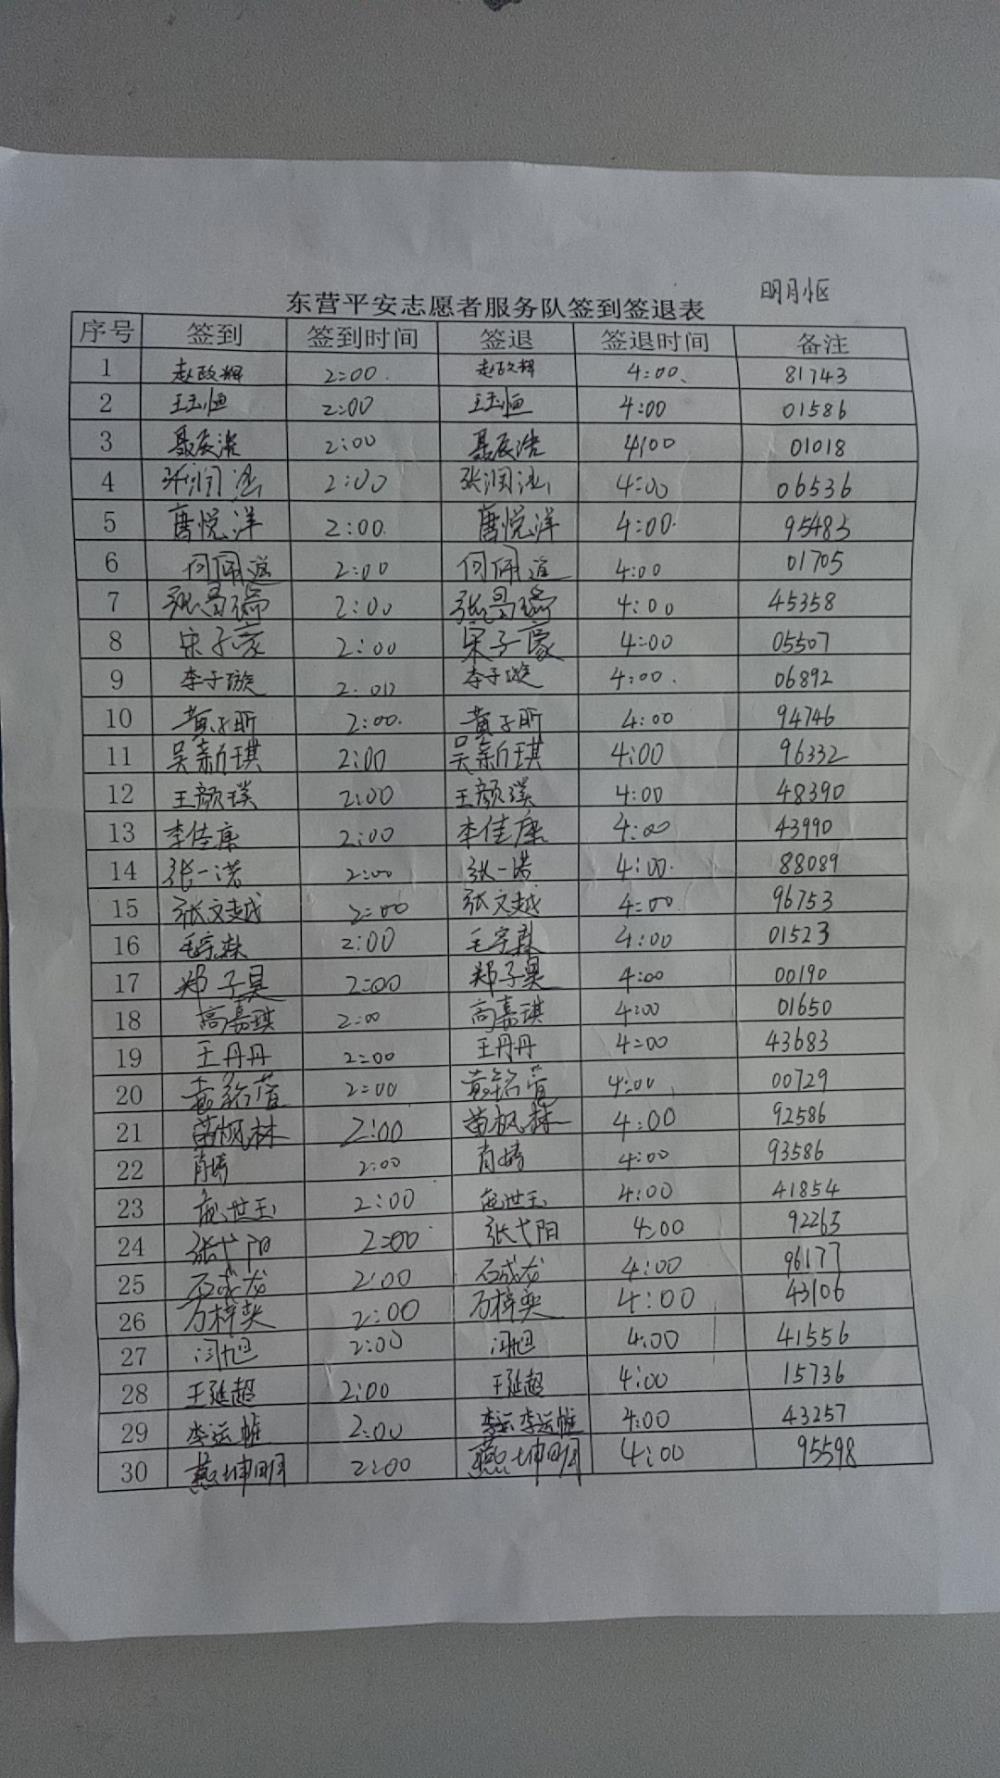 明月小区
东营平安志愿者服务队签到签退表
序号 签到 签到时间 签退 签退时间 备注
1 赵政辉 2:00. 赵政辉 4:00、 81743
2 王玉恒 2:00 王玉恒 4:00 01586
3 聂辰浩 2:00 聂辰浩 4:00 01018
4 张润泓 2:00 张润泓 4:00 06536
5 唐悦洋 2:00. 唐悦洋 4:00. 95483
6 何佩谊 2:00 何佩谊 4:00 01705
7 张昌瑞 2:00 张昌瑞 4:00 45358
8 宋子豪 2:00 宋子豪 4:00 05507
9 李子璇 2:00 李子璇 4:00. 06892
10 黄子昕 2:00. 黄子昕 4:00 94746
11 吴新琪 2:00 吴新琪 4:00 96332
12 王颜璞 2:00 王颜璞 4:00 48390
13 李佳康 2:00 李佳康 4:00 43990
14 张一诺 2:00 张一诺 4:00. 88089
15 张文越 2:00 张文越 4:00 96753
16 毛宗森 2:00 毛宗森 4:00 01523
17 郑子昊 2:00 郑子昊 4:00 00190
18 高嘉琪 2:00 高嘉琪 4:00 01650
19 王丹丹 2:00 王丹丹 4:00 43683
20 袁铭萱 2:00 袁铭萱 4:00 00729
21 苗枫林 2:00 苗枫林 4:00 92586
22 肖婷 2:00 肖婷 4:00 93586
23 世玉 2:00 世玉 4:00 41854
24 张弋阳 2:00 张弋阳 4:00 92265
25 石成龙 2:00 石成龙 4:00 96177
26 万梓奕 2:00 万梓奕 4:00 43106
27 闫旭 2:00 闫旭 4:00 41556
28 王延超 2:00 王延超 4:00 15736
29 李运帷 2:00 李运 李运帷 4:00 43257
30 燕坤明 2:00 燕坤明 4:00 95598